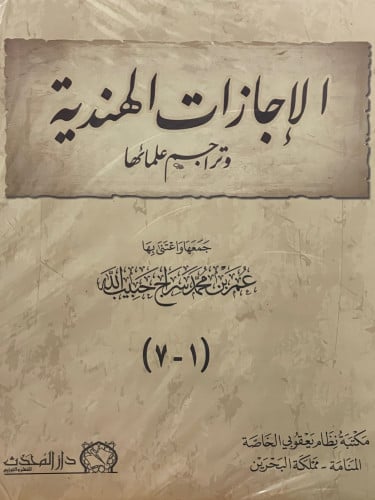 الإجازات الهندية
وتراجم علمائها
جمعها واعتنى بها
عمر بن محمد سراج حبيب الله
(١-٧)
مكتبة نظام يعقوبي الخاصة
المنامة - مملكة البحرين
دار المحدث
للنشر والتوزيع